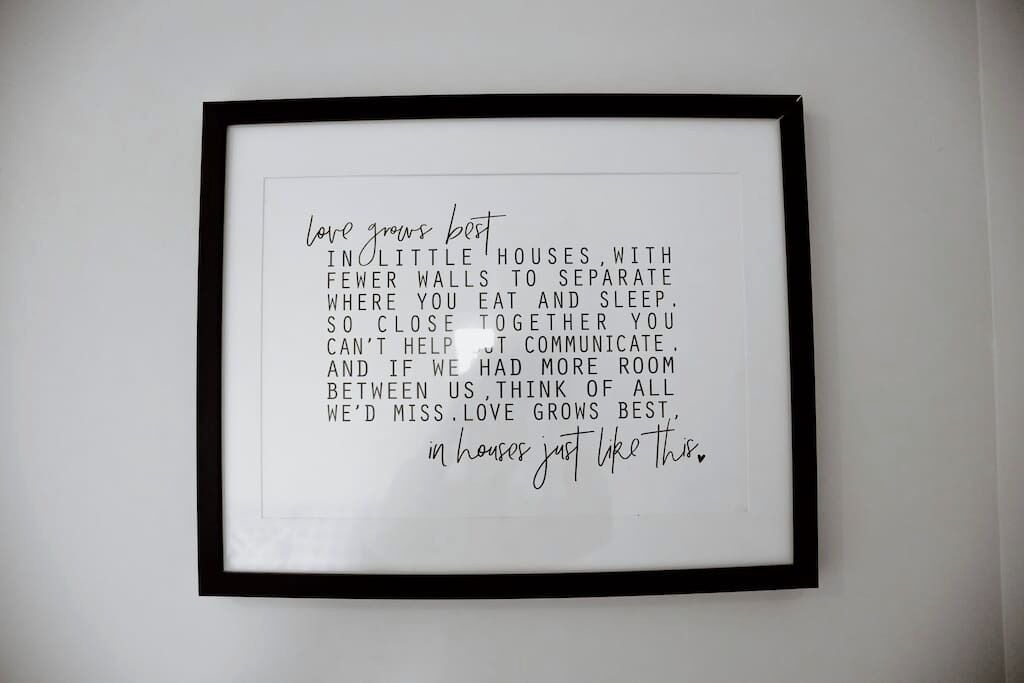 love grows best
IN LITTLE HOUSES, WITH
FEWER WALLS TO SEPARATE
WHERE YOU EAT AND SLEEP.
SO CLOSE TOGETHER YOU
CAN'T HELP BUT COMMUNICATE.
AND IF WE HAD MORE ROOM
BETWEEN US, THINK OF ALL
WE'D MISS. LOVE GROWS BEST,
in houses just like this.